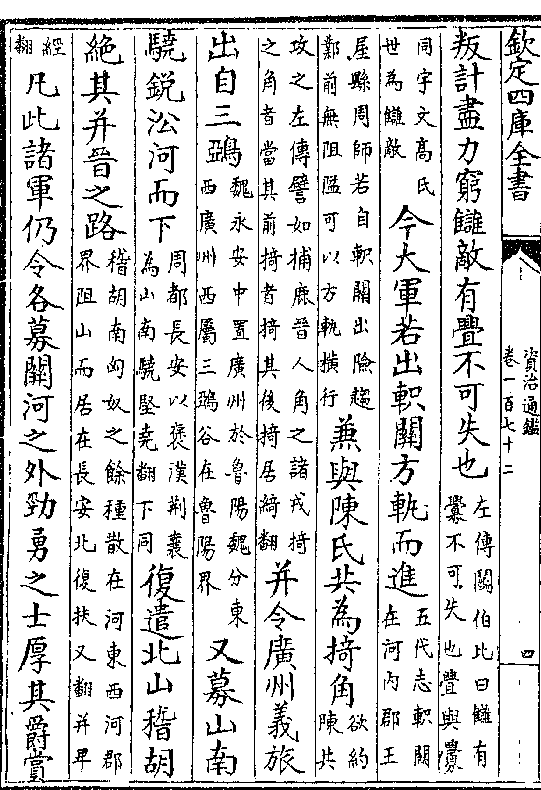 欽定四庫全書
資治通鑑
卷一百七十二
四
叛計盡力窮讎敵有舋不可失也
左傳鬬伯比曰讎有
釁不可失也舋與釁
同宇文高氏
世為讎敵
今大軍若出軹關方軌而進
五代志軹關
在河内郡王
屋縣周師若自軹關出險趨
鄭前無阻隘可以方軌横行
兼與陳氏共為掎角
欲約
陳共
攻之左傳譬如捕鹿晉人角之諸戎掎
之角者當其前掎者掎其後掎居綺翻
并令廣州義旅
出自三鵶
魏永安中置廣州於魯陽魏分東
西廣州西屬三鵶谷在魯陽界
又募山南
驍鋭㳂河而下
周都長安以褒漢荆襄
為山南驍堅堯翻下同
復遣北山稽胡
絶其并晉之路
稽胡南匈奴之餘種散在河東西河郡
界阻山而居在長安北復扶又翻并卑
經
翻
凡此諸軍仍令各募關河之外勁勇之士厚其爵賞